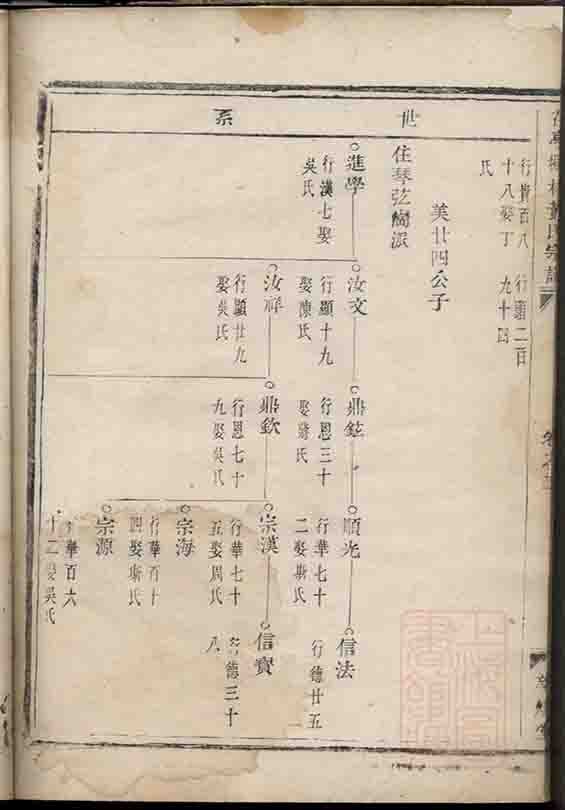 世系
行貴百八 行蕭二百
十八娶丁 九十四
氏
美廿四公子
住琴弦崗派
進學
行漢七娶
吳氏
汝文
行顯十九
娶陳氏
鼎鉉
行恩三十
娶蔣氏
順光
行華七十
二娶斯氏
信法
行德廿五
汝祥
行顯廿九
娶吳氏
鼎欽
行恩七十
九娶吳氏
宗漢
行華七十
五娶周氏
信實
行德三十
八
宗海
行華百十
四娶斯氏
宗源
行華百六
十二娶吳氏